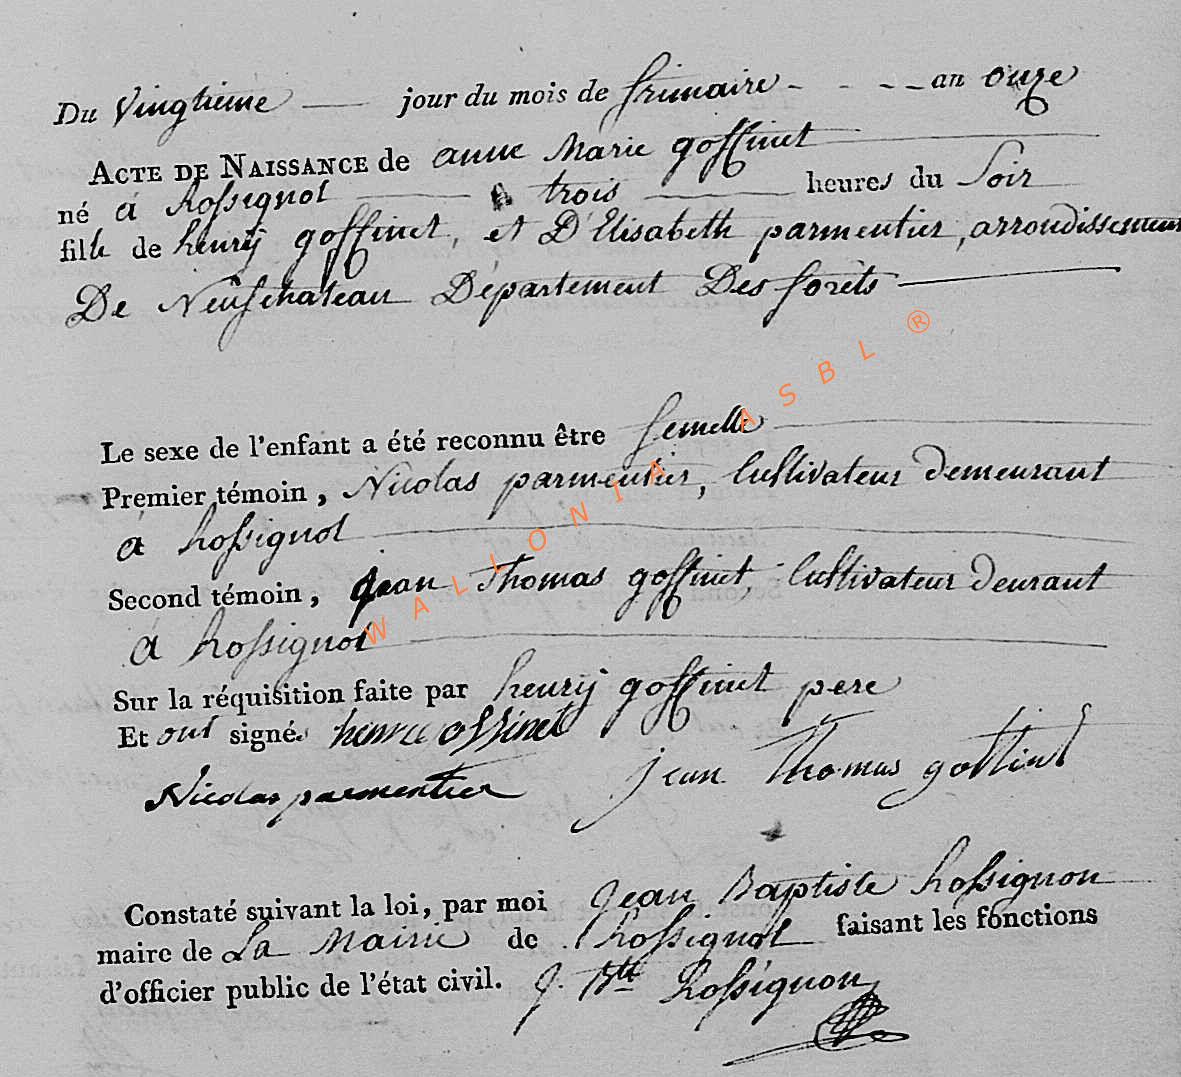 Du Vingtieme jour du mois de frimaire - - - - an onze
ACTE DE NAISSANCE de anne Marie goffinet
né à Rossignol à trois heures du Soir
fille de henrij goffinet, et D'Elisabeth parmentier, arrondissement
De Neufchateau Département Des forêts
Le sexe de l'enfant a été reconnu être femelle
Premier témoin, Nicolas parmentier, Cultivateur demeurant
à Rossignol
Second témoin, Jean Thomas goffinet Cultivateur deurant
à Rossignol
Sur la réquisition faite par henrij goffinet pere
Et ont signé
Nicolas parmentier jean thomas goffinet
Constaté suivant la loi, par moi Jean Baptiste Rossignon
maire de La Mairie de Rossignol faisant les fonctions
d'officier public de l'état civil. J. Bte Rossignon
WALLONIA ASBL ®